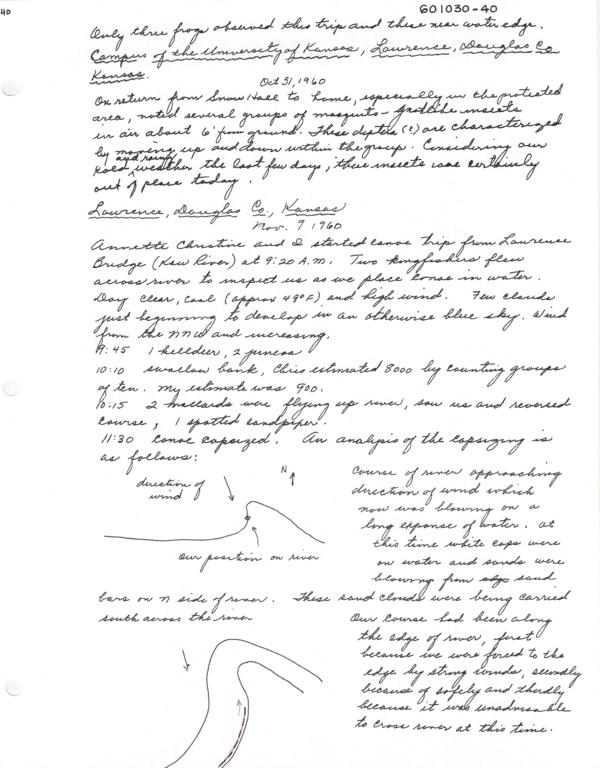 40
601030-40
Only three frogs observed this trip and these near water edge.
Campus of the University of Kansas, Lawrence, Douglas Co
Kansas.
Oct 31, 1960
On return from Snow Hall to home, especially in the protected
area, noted several groups of mosquito-gnatlike insects
in air about 6' from ground. These diptera (?) are characterized
by moving up and down within the group. Considering our
cold and rainy weather the last few days, these insects were certainly
out of place today.
Lawrence, Douglas Co., Kansas
Nov. 9 1960
Annette Christine and I started canoe trip from Lawrence
Bridge (Kaw River) at 9:20 A.M. Two kingfishers flew
across river to inspect us as we place canoe in water.
Day clear, cool (approx 49°F) and high wind. Few clouds
just beginning to develop in an otherwise blue sky. Wind
from the NNW and increasing.
9:45 1 killdeer, 2 juncos
10:10 swallow bank, Chris estimated 8000 by counting groups
of ten. My estimate was 900.
10:15 2 mallards were flying up river, saw us and reversed
course, 1 spotted sandpiper.
11:30 Canoe capsized. An analysis of the capsizing is
as follows:
direction of
wind
N
our position on river
Course of river approaching
direction of wind which
now was blowing on a
long expanse of water. At
this time white caps were
on water and sands were
blowing from sand
bars on N side of river. These sand clouds were being carried
south across the river
Our course had been along
the edge of river, first
because we were forced to the
edge by strong winds, secondly
because of safety and thirdly
because it was unadvisable
to cross river at this time.